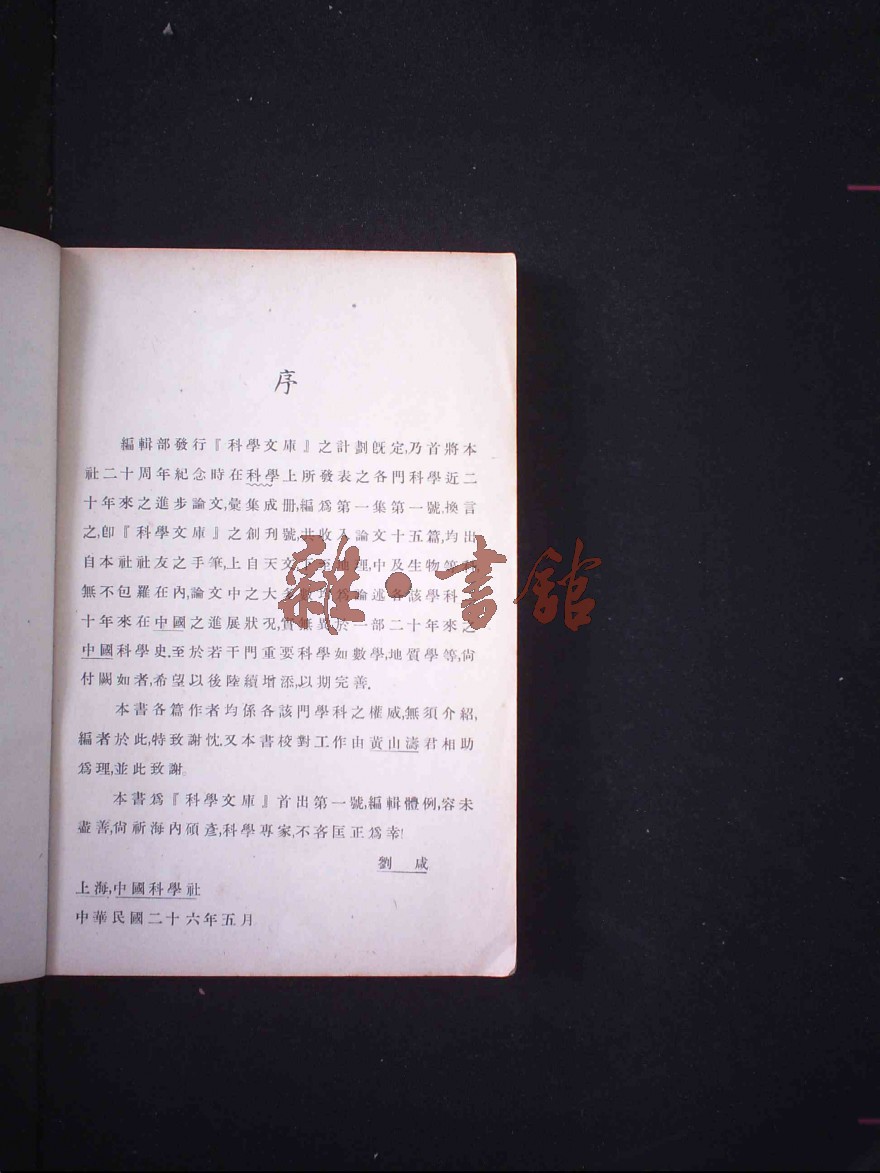 序
編輯部發行『科學文庫』之計劃旣定,乃首將本
社二十周年紀念時在科學上所發表之各門科學近二
十年來之進步論文,彙集成册,編爲第一集第一號,換言
之,卽『科學文庫』之創刊號,共收入論文十五篇,均出
自本社社友之手筆,上自天文,下至地理,中及生物等科,
無不包羅在內,論文中之大多數均爲論述各該學科
十年來在中國之進展狀況,實無異於一部二十年來之
中國科學史.至於若干門重要科學如數學,地質學等,尙
付闕如者,希望以後陸續增添,以期完善.
本書各篇作者均係各該門學科之權威,無須介紹,
編者於此,特致謝忱.又本書校對工作由黃山濤君相助
爲理,並此致謝.
本書爲『科學文庫』首出第一號,編輯體例,容未
盡善,尙祈海內碩彥,科學專家,不吝匡正爲幸!
劉 咸
上海,中國科學社
中華民國二十六年五月
雜·書館